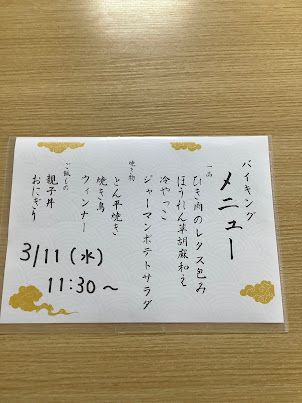 バイキング
メニュー
一品
ひき肉のレタス包み
ほうれん草胡麻和え
冷やっこ
ジャーマンポテトサラダ
焼き物
とん平焼き
焼き鳥
ウィンナー
ご飯もの
親子丼
おにぎり
3/11(水)
11:30～